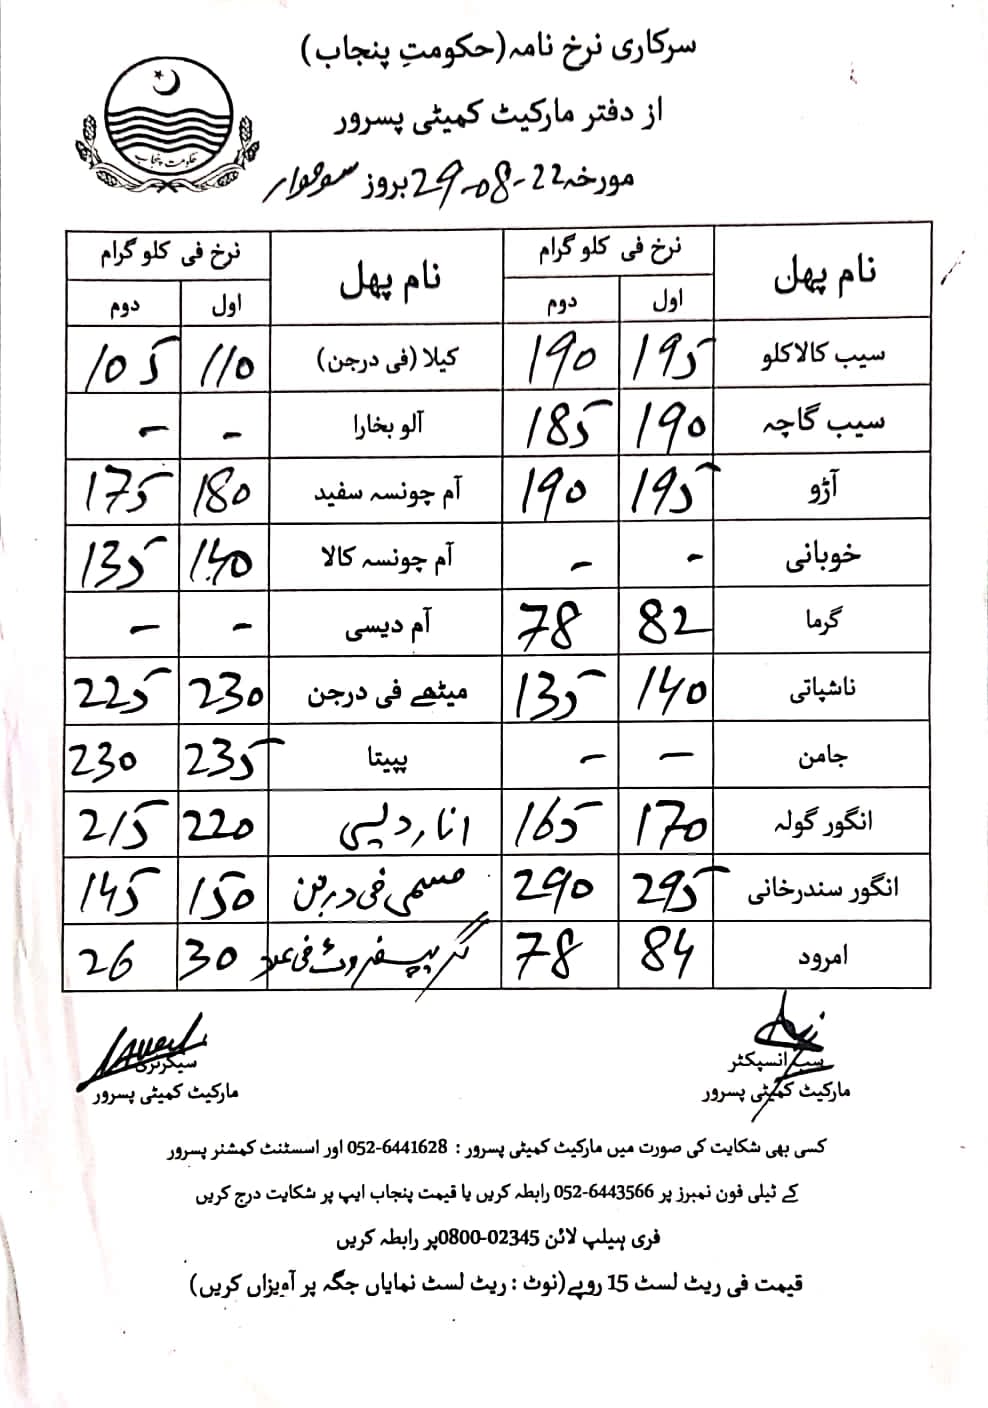 سرکاری نرخ نامہ (حکومتِ پنجاب)
از دفتر مارکیٹ کمیٹی پسرور
مورخہ 29-08-22 بروز سوموار
حکومت پنجاب
نام پھل نرخ فی کلو گرام نام پھل نرخ فی کلو گرام
اول دوم اول دوم
سیب کالاکلو 195 190 کیلا (فی درجن) 110 105
سیب گاچہ 190 185 آلو بخارا - -
آڑو 195 190 آم چونسہ سفید 180 175
خوبانی - - آم چونسہ کالا 140 135
گرما 82 78 آم دیسی - -
ناشپاتی 140 135 میٹھے فی درجن 230 225
جامن - - پپیتا 235 230
انگور گولہ 170 165 انار دیسی 220 215
انگور سندرخانی 295 290 مسمی فی درجن 150 145
امرود 84 78 گریپ فروٹ فی عدد 30 26
سب انسپکٹر سیکرٹری
مارکیٹ کمیٹی پسرور مارکیٹ کمیٹی پسرور
کسی بھی شکایت کی صورت میں مارکیٹ کمیٹی پسرور : 052-6441628 اور اسسٹنٹ کمشنر پسرور
کے ٹیلی فون نمبرز پر 052-6443566 رابطہ کریں یا قیمت پنجاب ایپ پر شکایت درج کریں
فری ہیلپ لائن 02345-0800 پر رابطہ کریں
قیمت فی ریٹ لسٹ 15 روپے (نوٹ : ریٹ لسٹ نمایاں جگہ پر آویزاں کریں)